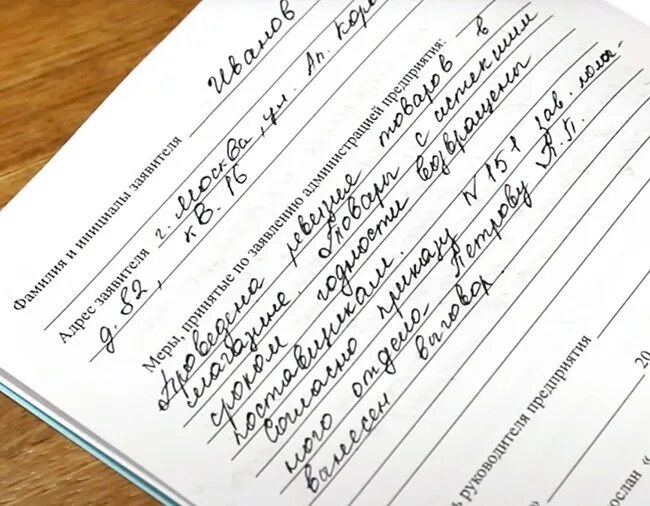 Фамилия и инициалы заявителя Иванов
Адрес заявителя г. Москва, ул. Ап. Кор
д. 82, кв. 16
Меры, принятые по заявлению администрацией предприятия:
Проведена ревизия товаров в
магазине. Товары с истекшим
сроком годности возвращены
поставщикам.
Согласно приказу N 151 зав. моло-
чного отдела Петрову А.П.
вынесен выговор.
руководителя предприятия
20
ослан «